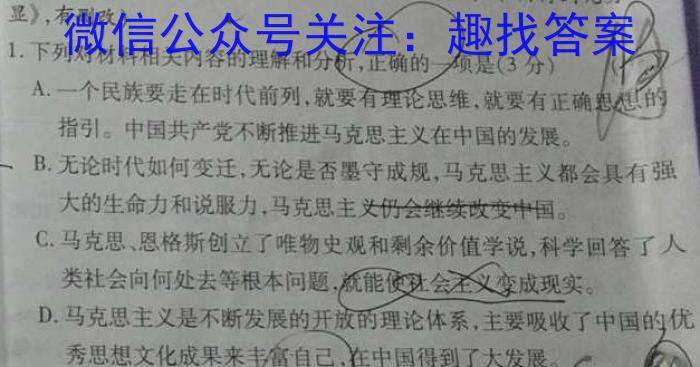 显》,有删改)
微信公众号关注：趣找答案
1.下列对材料相关内容的理解和分析,正确的一项是(3分)
A.一个民族要走在时代前列,就要有理论思维,就要有正确思想的
指引。中国共产党不断推进马克思主义在中国的发展。
B.无论时代如何变迁,无论是否墨守成规,马克思主义都会具有强
大的生命力和说服力,马克思主义仍会继续改变中国。
C.马克思、恩格斯创立了唯物史观和剩余价值学说,科学回答了人
类社会向何处去等根本问题,就能使社会主义变成现实。
D.马克思主义是不断发展的开放的理论体系,主要吸收了中国的优
秀思想文化成果来丰富自己,在中国得到了大发展。